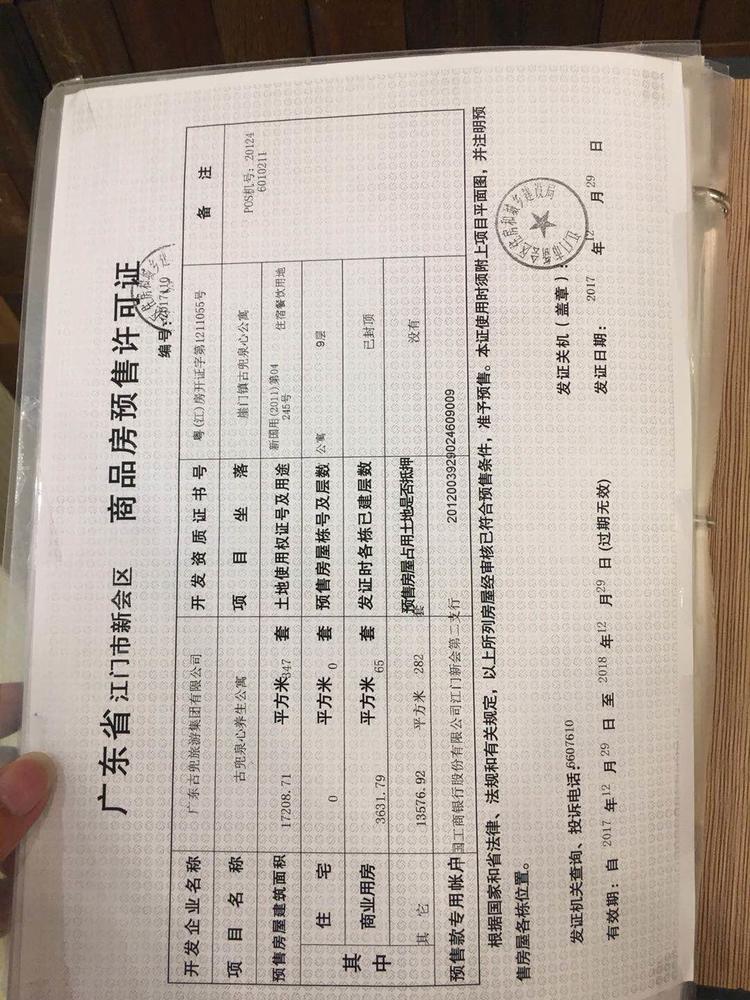 广东省 江门市新会区 商品房预售许可证
编号:2017110
开发企业名称 广东古兜旅游集团有限公司 开发资质证书号 粤(江)房开证字第1211055号 备注
项目名称 古兜泉心养生公寓 项目坐落 崖门镇古兜泉心公寓 POS机号:20124
6010211
预售房屋建筑面积 17208.71 平方米 347 套 土地使用权证号及用途 新国用(2011)第04 住宿餐饮用地
245号
其中 住宅 0 平方米 0 套 预售房屋栋号及层数 公寓 9层
商业用房 3631.79 平方米 65 套 发证时各栋已建层数 已封顶
其它 13576.92 平方米 282 套 预售房屋占用土地是否抵押 没有
预售款专用帐户 国工商银行股份有限公司江门新会第二支行 2012003929024609009
根据国家和省法律、法规和有关规定,以上所列房屋经审核已符合预售条件,准予预售。本证使用时须附上项目平面图,并注明预
售房屋各栋位置。
发证机关查询、投诉电话:6607610 发证关机(盖章):
有效期:自 2017 年 12 月 29 日 至 2018 年 12 月 29 日(过期无效) 发证日期: 2017 年 12 月 29 日